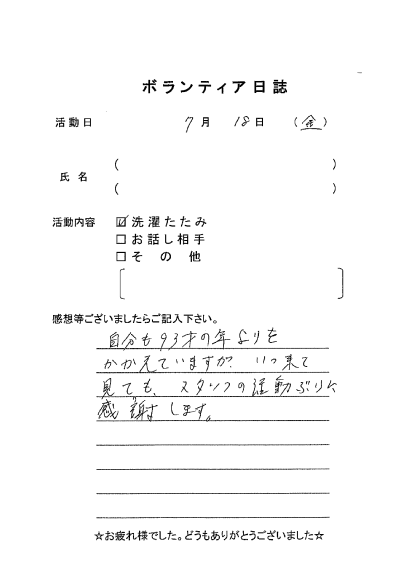 ボランティア日誌
活動日 7月 18日 (金)
氏名 ( )
( )
活動内容 ☑洗濯たたみ
□お話し相手
□その他
[ ]
感想等ございましたらご記入下さい。
自分も93才の年よりを
かかえていますが、いつ来て
見ても、スタッフの活動ぶりに
感謝します。
☆お疲れ様でした。どうもありがとうございました☆